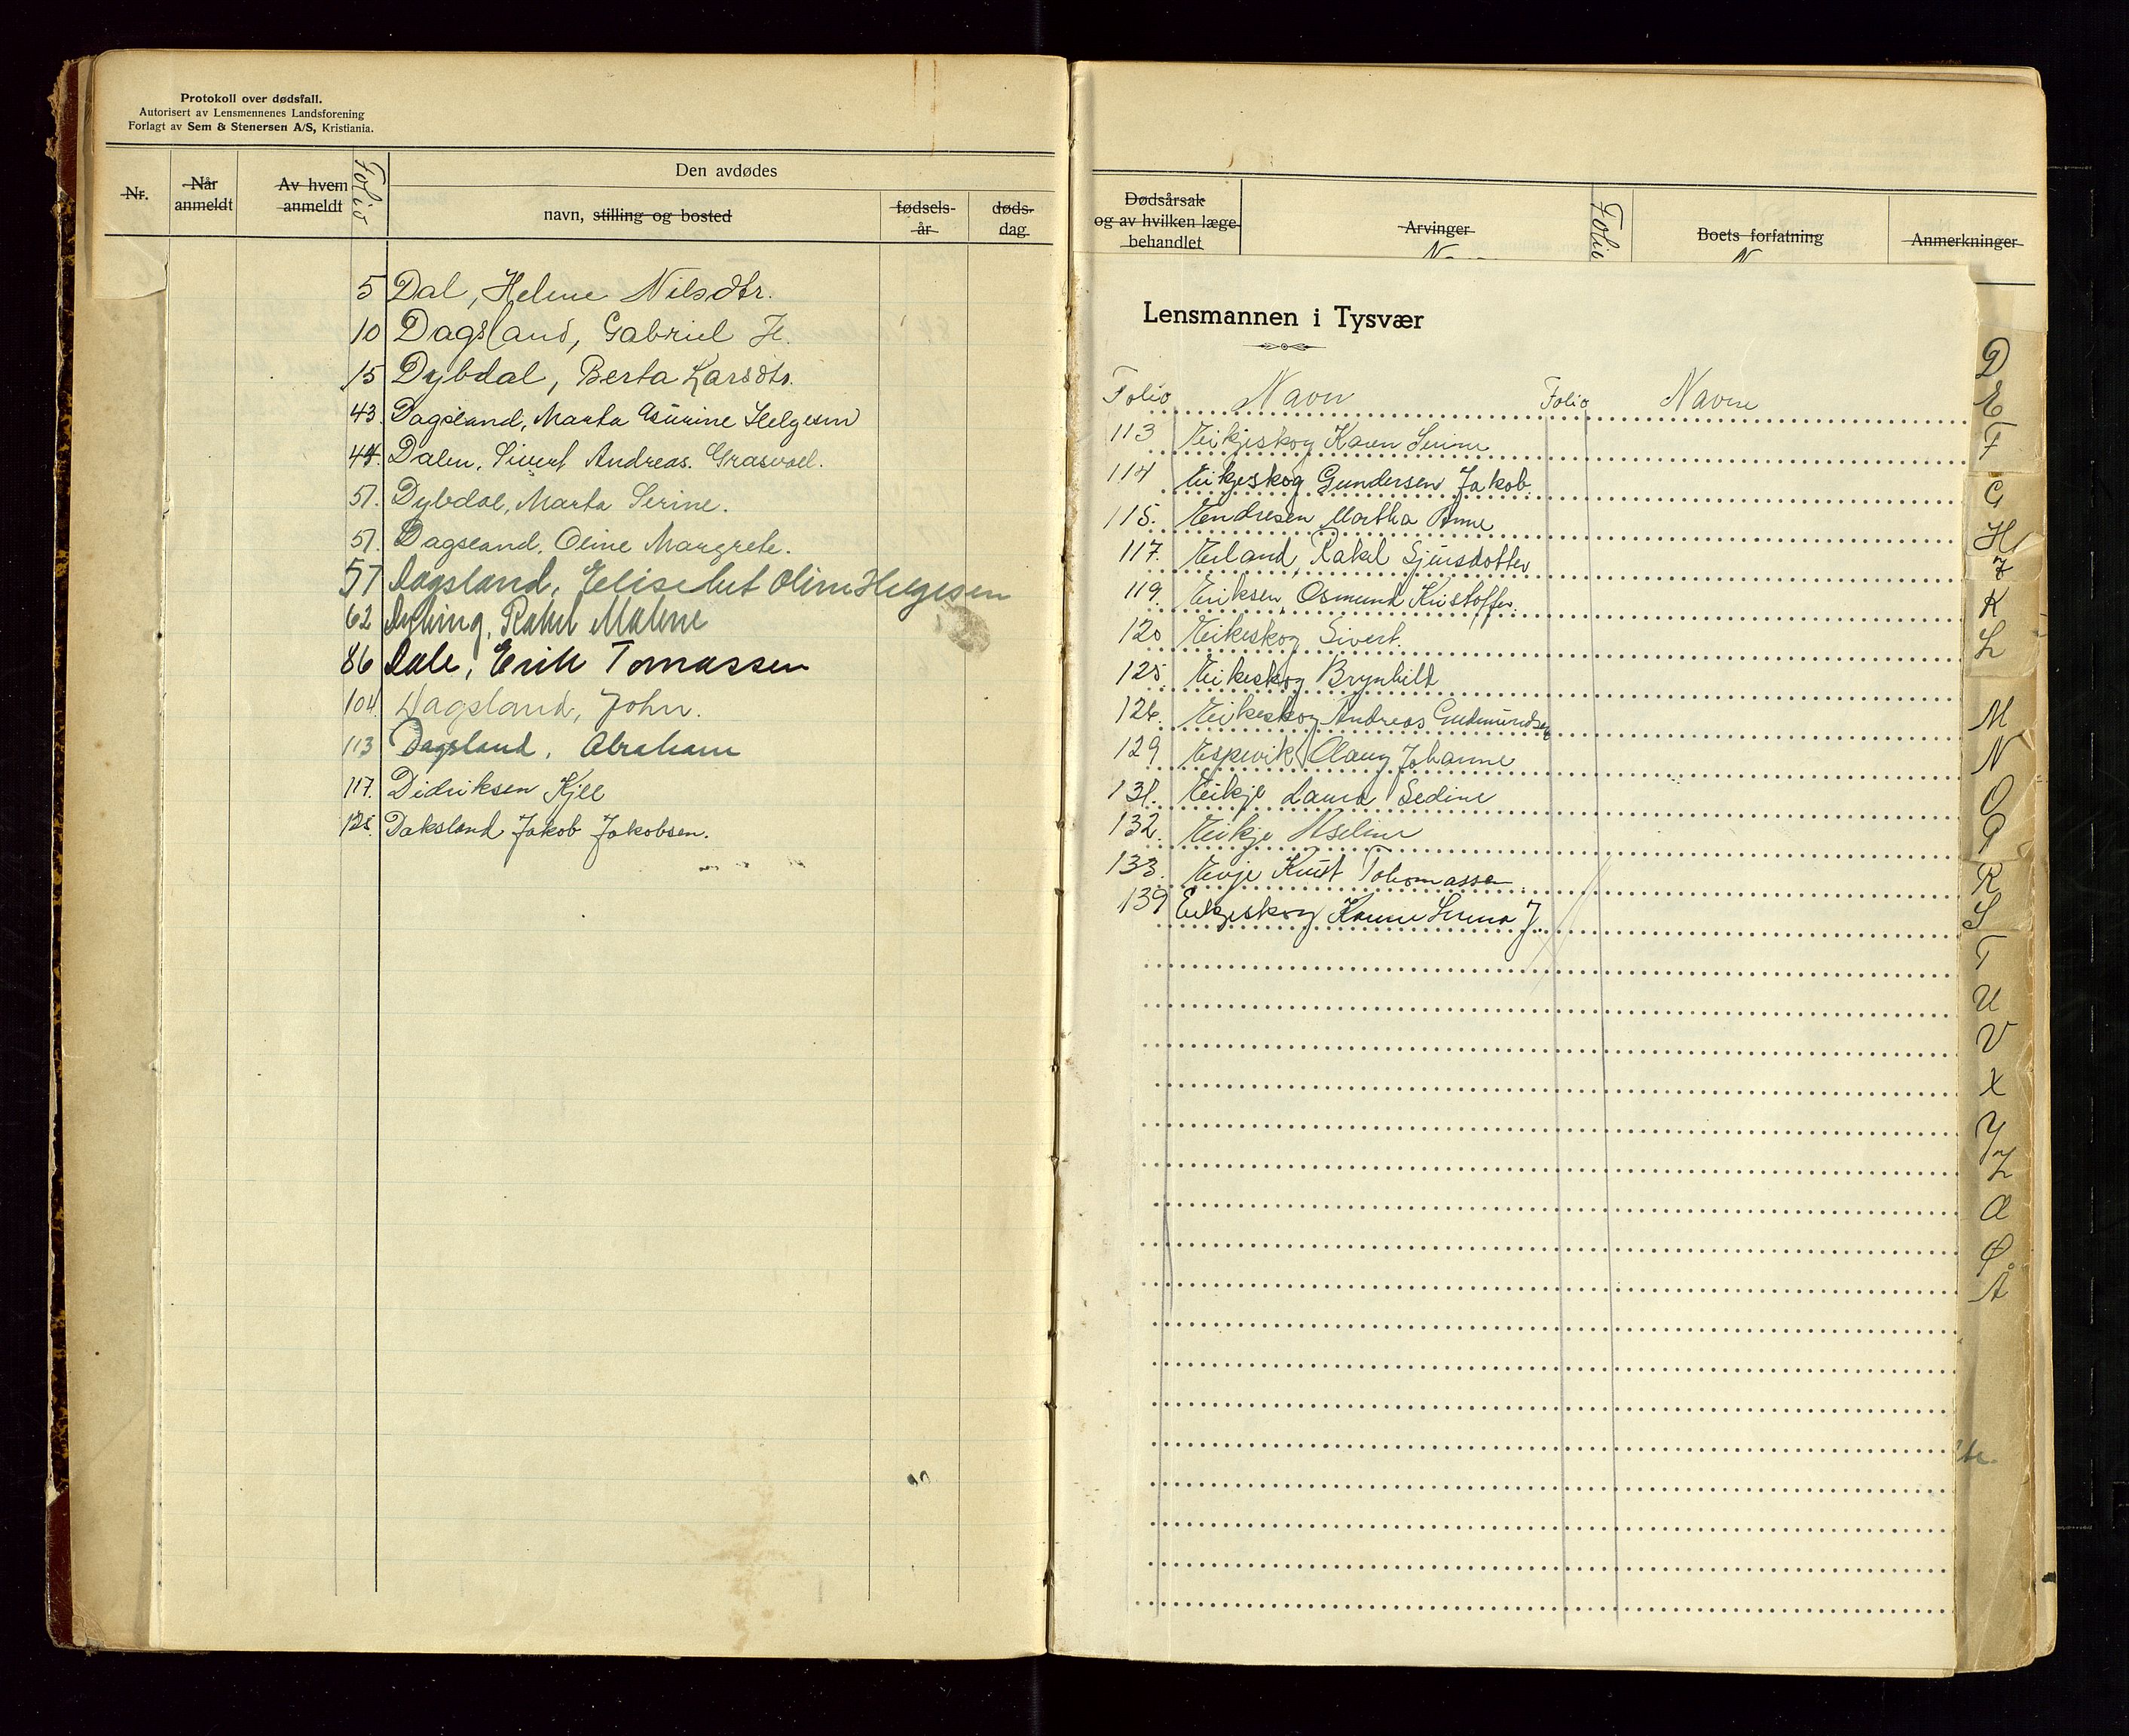 Protokoll over dødsfall.
Autorisert av Lensmennenes Landsforening
Forlagt av Sem & Stenersen A/S, Kristiania.
Nr.
Når anmeldt
Av hvem anmeldt
Folio
Den avdødes
navn, stilling og bosted
fødsels-år
døds-dag
5 Dal, Helene Nilsdtr.
10 Dagsland, Gabriel H.
15 Dybdal, Berta Larsdtr.
43. Dagsland, Marta Asurine Helgesen
44. Dalen, Sivert Andreas. Grasvoll.
51. Dybdal, Marta Serine.
51. Dagsland, Oline Margrete.
57 Dagsland, Elisebet Oline Helgesen
62 Rakel Malene
86 Dale, Erik Tomassen
104 Dagsland, John.
113 Dagsland, Abraham
117. Didriksen Kjel
125. Daksland Jakob Jakobsen.
Dødsårsak
og av hvilken læge
behandlet
Arvinger
Folio
Boets forfatning
Anmerkninger
Lensmannen i Tysvær
Folio Navn Folio Navn
113 Eikjeskog Karen Serine
114 Eikjeskog Gundersen Jakob.
115. Endresen Martha Anne
117. Erland, Rakel Sjursdotter
119. Eriksen, Osmund Kristoffer.
120 Eikeskog Sivert.
125. Eikeskog Brynhild
126. Eikeskog Andreas Gudmundsen
129 Espevik Olaug Johanne
131. Eikje Laura Sedine
132. Eikje Aseline
133. Evje Knut Tohomassen.
139 Eikjeskog Serina J.
D
E
F
G
H
I
K
L
M
N
O
P
R
S
T
U
V
X
Y
Z
Æ
Ø
Å